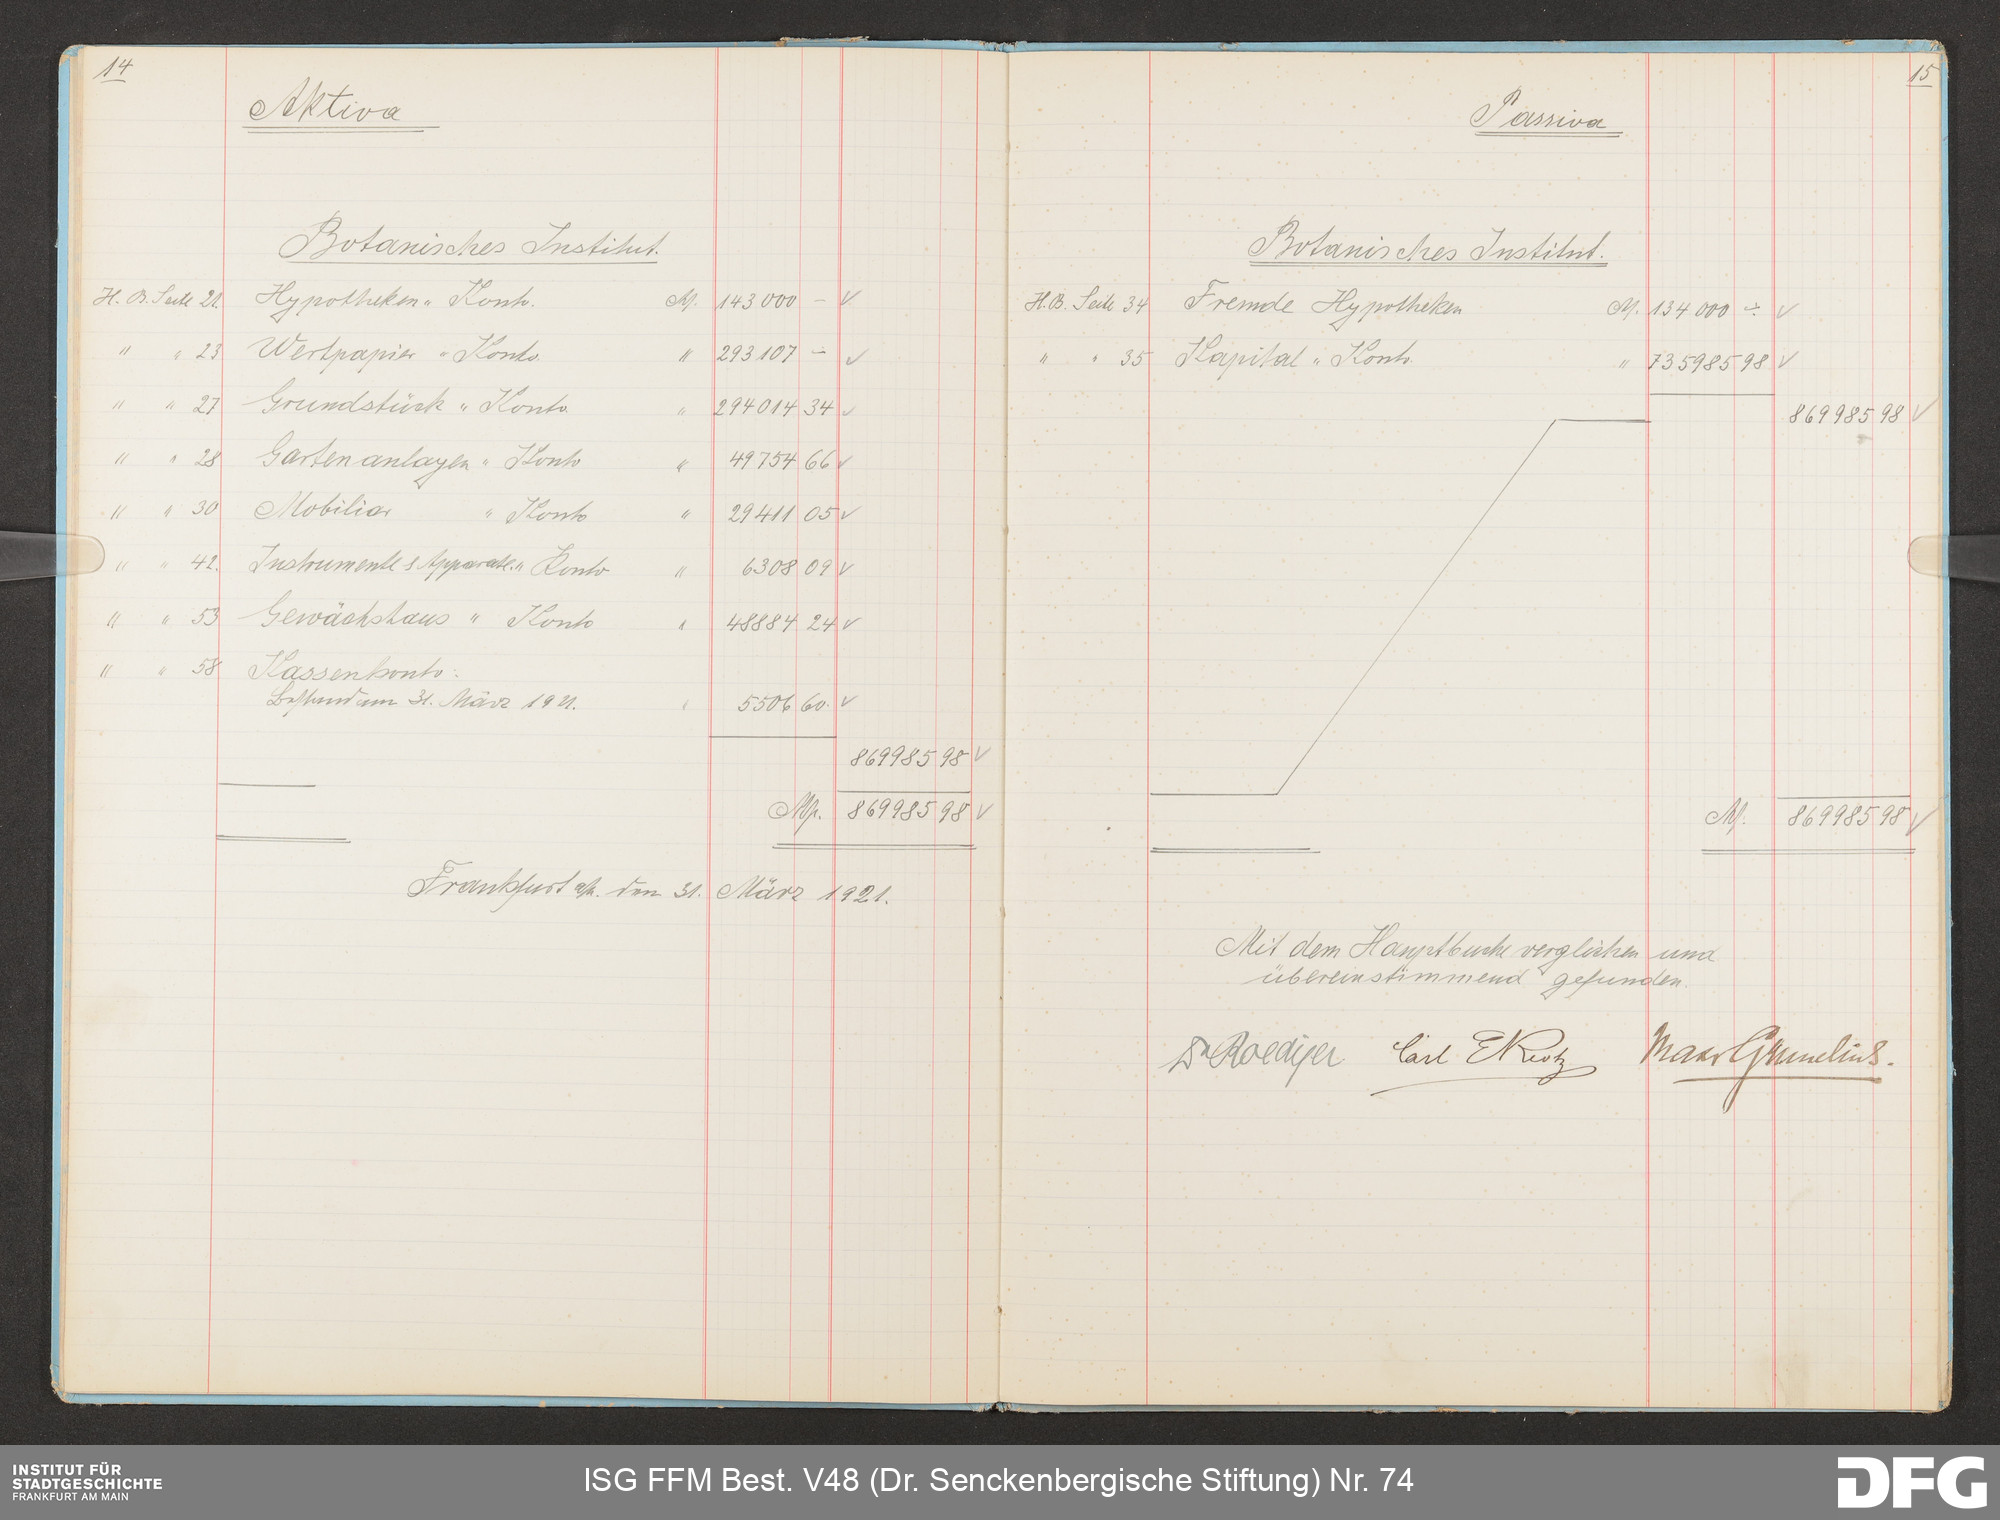 14
Aktiva
Botanisches Institut.
H. B. Seite 21. Hypotheken " Konto. M. 143 000 — ✓
" " 23 Wertpapier " Konto " 293 107 — ✓
" " 27 Grundstück " Konto " 294 014 34 ✓
" " 28 Gartenanlagen " Konto " 49 754 66 ✓
" " 30 Mobiliar " Konto " 29 411 05 ✓
" " 42. Instrumente & Apparate " Konto " 6308 09 ✓
" " 53 Gewächshaus " Konto " 48884 24 ✓
" " 58 Kassenkonto:
Bestand am 31. März 1921. " 5506 60. ✓
869985 98 ✓
M. 869985 98 ✓
Frankfurt a/M. den 31. März 1921.
15
Passiva
Botanisches Institut.
H. B. Seite 34 Fremde Hypotheken M. 134 000 — ✓
" " 35 Kapital " Konto " 735985 98 ✓
869985 98 ✓
M. 869985 98 ✓
Mit dem Hauptbuche verglichen und
übereinstimmend gefunden.
Dr Roediger Carl Max Grunelius.
INSTITUT FÜR
STADTGESCHICHTE
FRANKFURT AM MAIN
ISG FFM Best. V48 (Dr. Senckenbergische Stiftung) Nr. 74
DFG